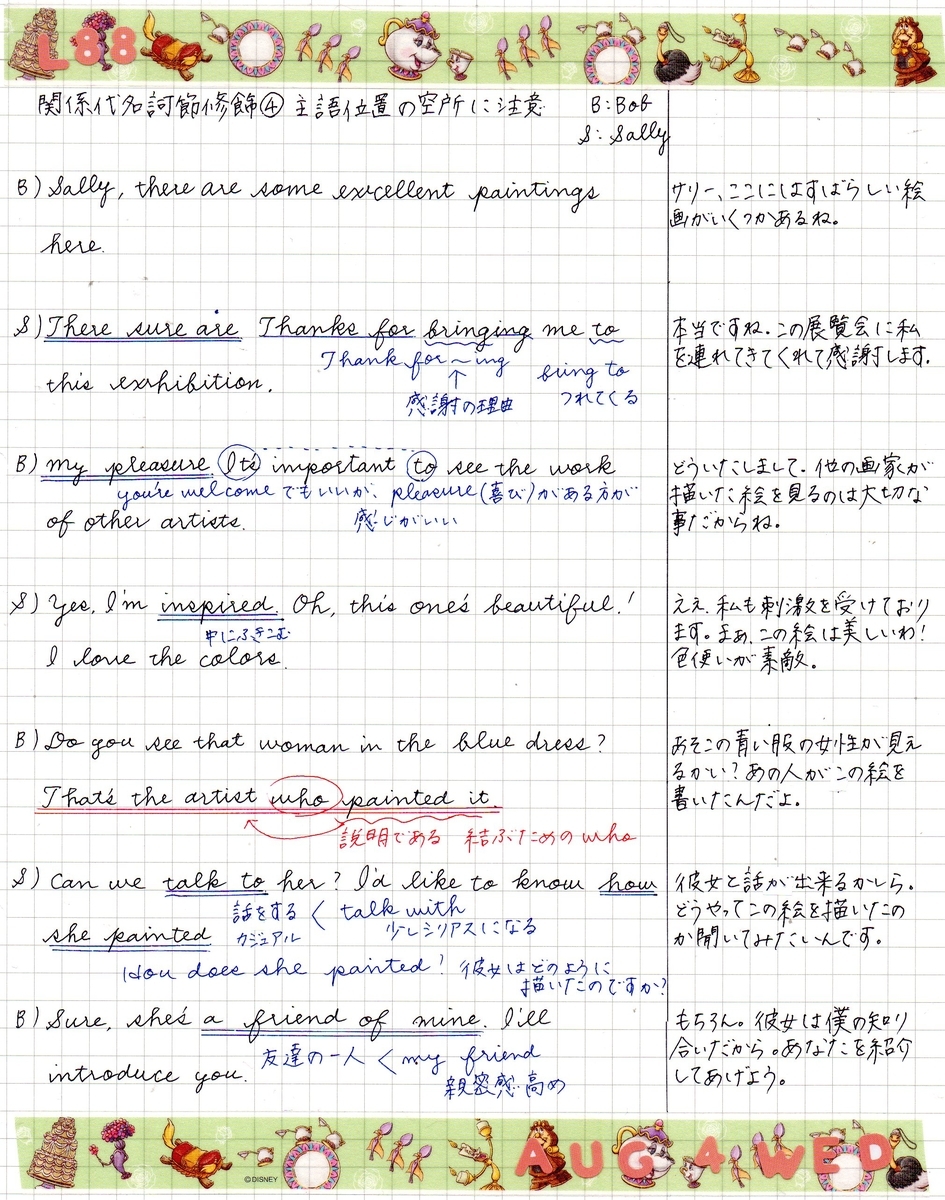 L88
関係代名詞節修飾④ 主語位置の空所に注意 B:Bob
S:Sally
B) Sally, there are some excellent paintings
here.
サリー、ここにはすばらしい絵
画がいくつかあるね。
S) There sure are Thanks for bringing me to
Thank for ～ing
bring to
this exhibition.
↑
感謝の理由
つれてくる
本当ですね。この展覧会に私
を連れてきてくれて感謝します。
B) my pleasure. It's important to see the work
you're welcomeでもいいが、pleasure(喜び)がある方が
of other artists.
感じがいい
どういたしまして。他の画家が
描いた絵を見るのは大切な
事だからね。
S) Yes, I'm inspired. Oh, this one's beautiful!
中にふきこむ
I love the colors.
ええ、私も刺激を受けており
ます。まあ、この絵は美しいわ!
色使いが素敵。
B) Do you see that woman in the blue dress?
That's the artist who painted it.
説明である 結ぶためのwho
あそこの青い服の女性が見え
るかい?あの人がこの絵を
書いたんだよ。
S) Can we talk to her? I'd like to know how
話をする < talk with
カジュアル
少しシリアスになる
she painted
How does she painted! 彼女はどのように
描いたのですか?
彼女と話が出来るかしら。
どうやってこの絵を描いたの
か聞いてみたいんです。
B) Sure, she's a friend of mine. I'll
友達の一人 < my friend
introduce you.
親密感 高め
もちろん。彼女は僕の知り
合いだから。あなたを紹介
してあげよう。
AUG 4 WED
©DISNEY